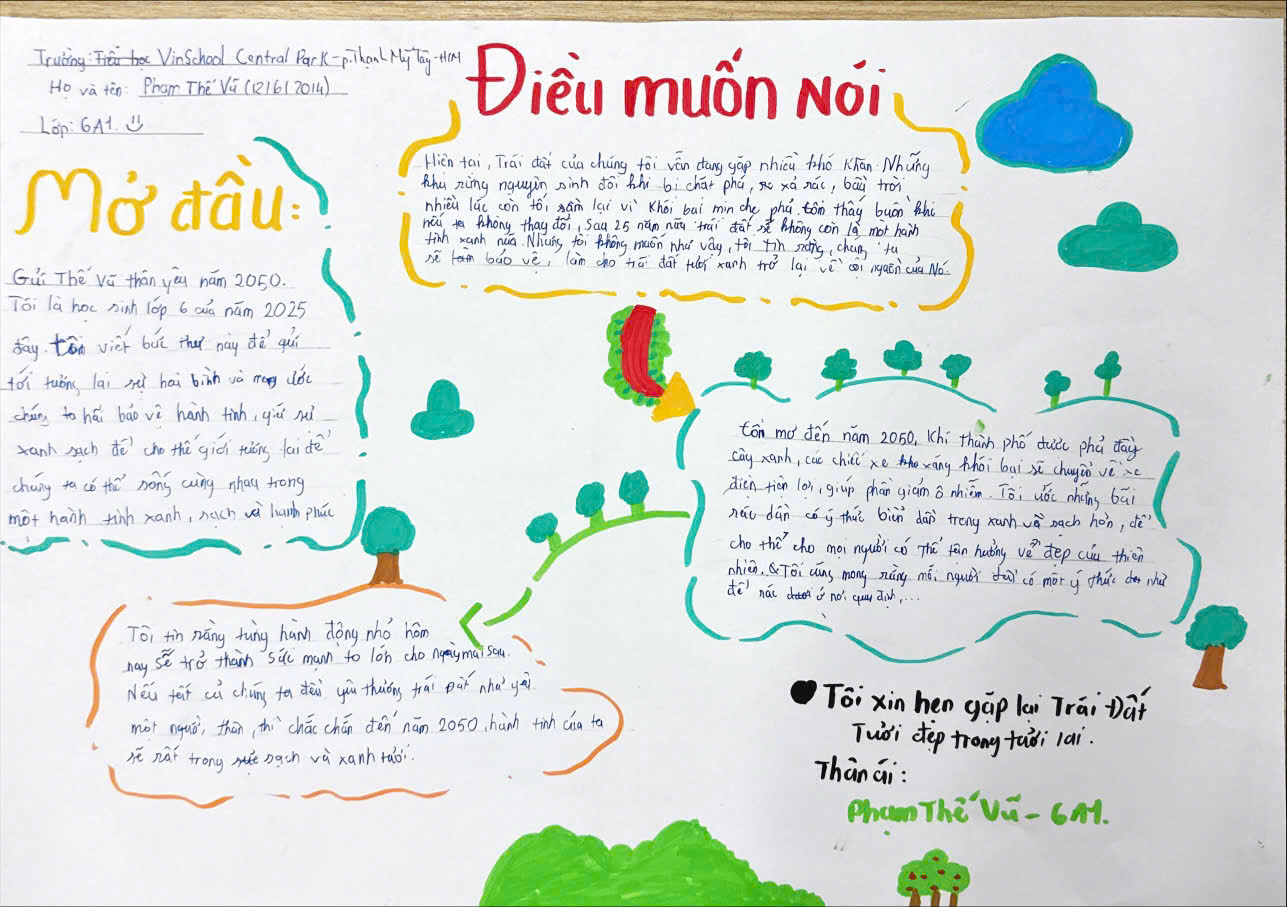 Trường: Tiểu học VinSchool Central Park - p.Thạnh Mỹ Tây - HCM
Họ và tên: Phạm Thế Vũ (12/6/2014)
Lớp: 6A1.
Mở đầu:
Gửi Thế Vũ thân yêu năm 2050.
Tôi là học sinh lớp 6 của năm 2025
đây. Tôi viết bức thư này để gửi
tới tương lai sự hoà bình và mong ước
chúng ta hãi bảo vệ hành tinh, giữ sự
xanh sạch để cho thế giới tương lai để
chúng ta có thể sống cùng nhau trong
một hành tinh xanh, sạch và hạnh phúc
Điều muốn nói
Hiện tại, Trái đất của chúng tôi vẫn đang gặp nhiều khó khăn. Những
khu rừng nguyên sinh đôi khi bị chặt phá, xả rác, bầu trời
nhiều lúc còn tối sầm lại vì khói bụi mịn che phủ. tôi thấy buồn khi
nếu ta không thay đổi, sau 25 năm nữa trái đất sẽ không còn là một hành
tinh xanh nữa. Nhưng tôi không muốn như vậy, tôi tin rằng, chúng ta
sẽ bảo vệ, làm cho trái đất tươi xanh trở lại về cội nguồn của Nó.
tôi mơ đến năm 2050, khi thành phố được phủ đầy
cây xanh, các chiếc xe xăng khói bụi sẽ chuyển về xe
điện tiện lợi, giúp phần giảm ô nhiễm. Tôi ước những bãi
rác dần có ý thức biến dần trong xanh và sạch hơn, để
cho thể cho mọi người có thể tận hưởng vẻ đẹp của thiên
nhiên. Tôi cũng mong rằng mỗi người đều có một ý thức như
để rác ở nơi quy định,...
Tôi tin rằng từng hành động nhỏ hôm
nay sẽ trở thành sức mạnh to lớn cho ngày mai sau.
Nếu tất cả chúng ta đều yêu thương trái Đất như yêu
một người thân, thì chắc chắn đến năm 2050, hành tinh của ta
sẽ rất trong sạch và xanh tươi.
Tôi xin hẹn gặp lại Trái Đất
Tươi đẹp trong tưởi lai.
Thân ái:
Phạm Thế Vũ - 6A1.